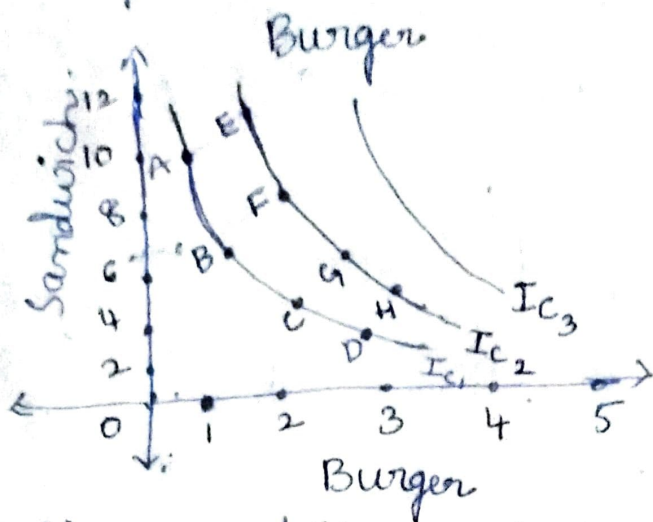 Burger
Sandwich
12
10
8
6
4
2
0
A
B
C
D
E
F
G
H
IC1
IC2
IC3
1 2 3 4 5
Burger